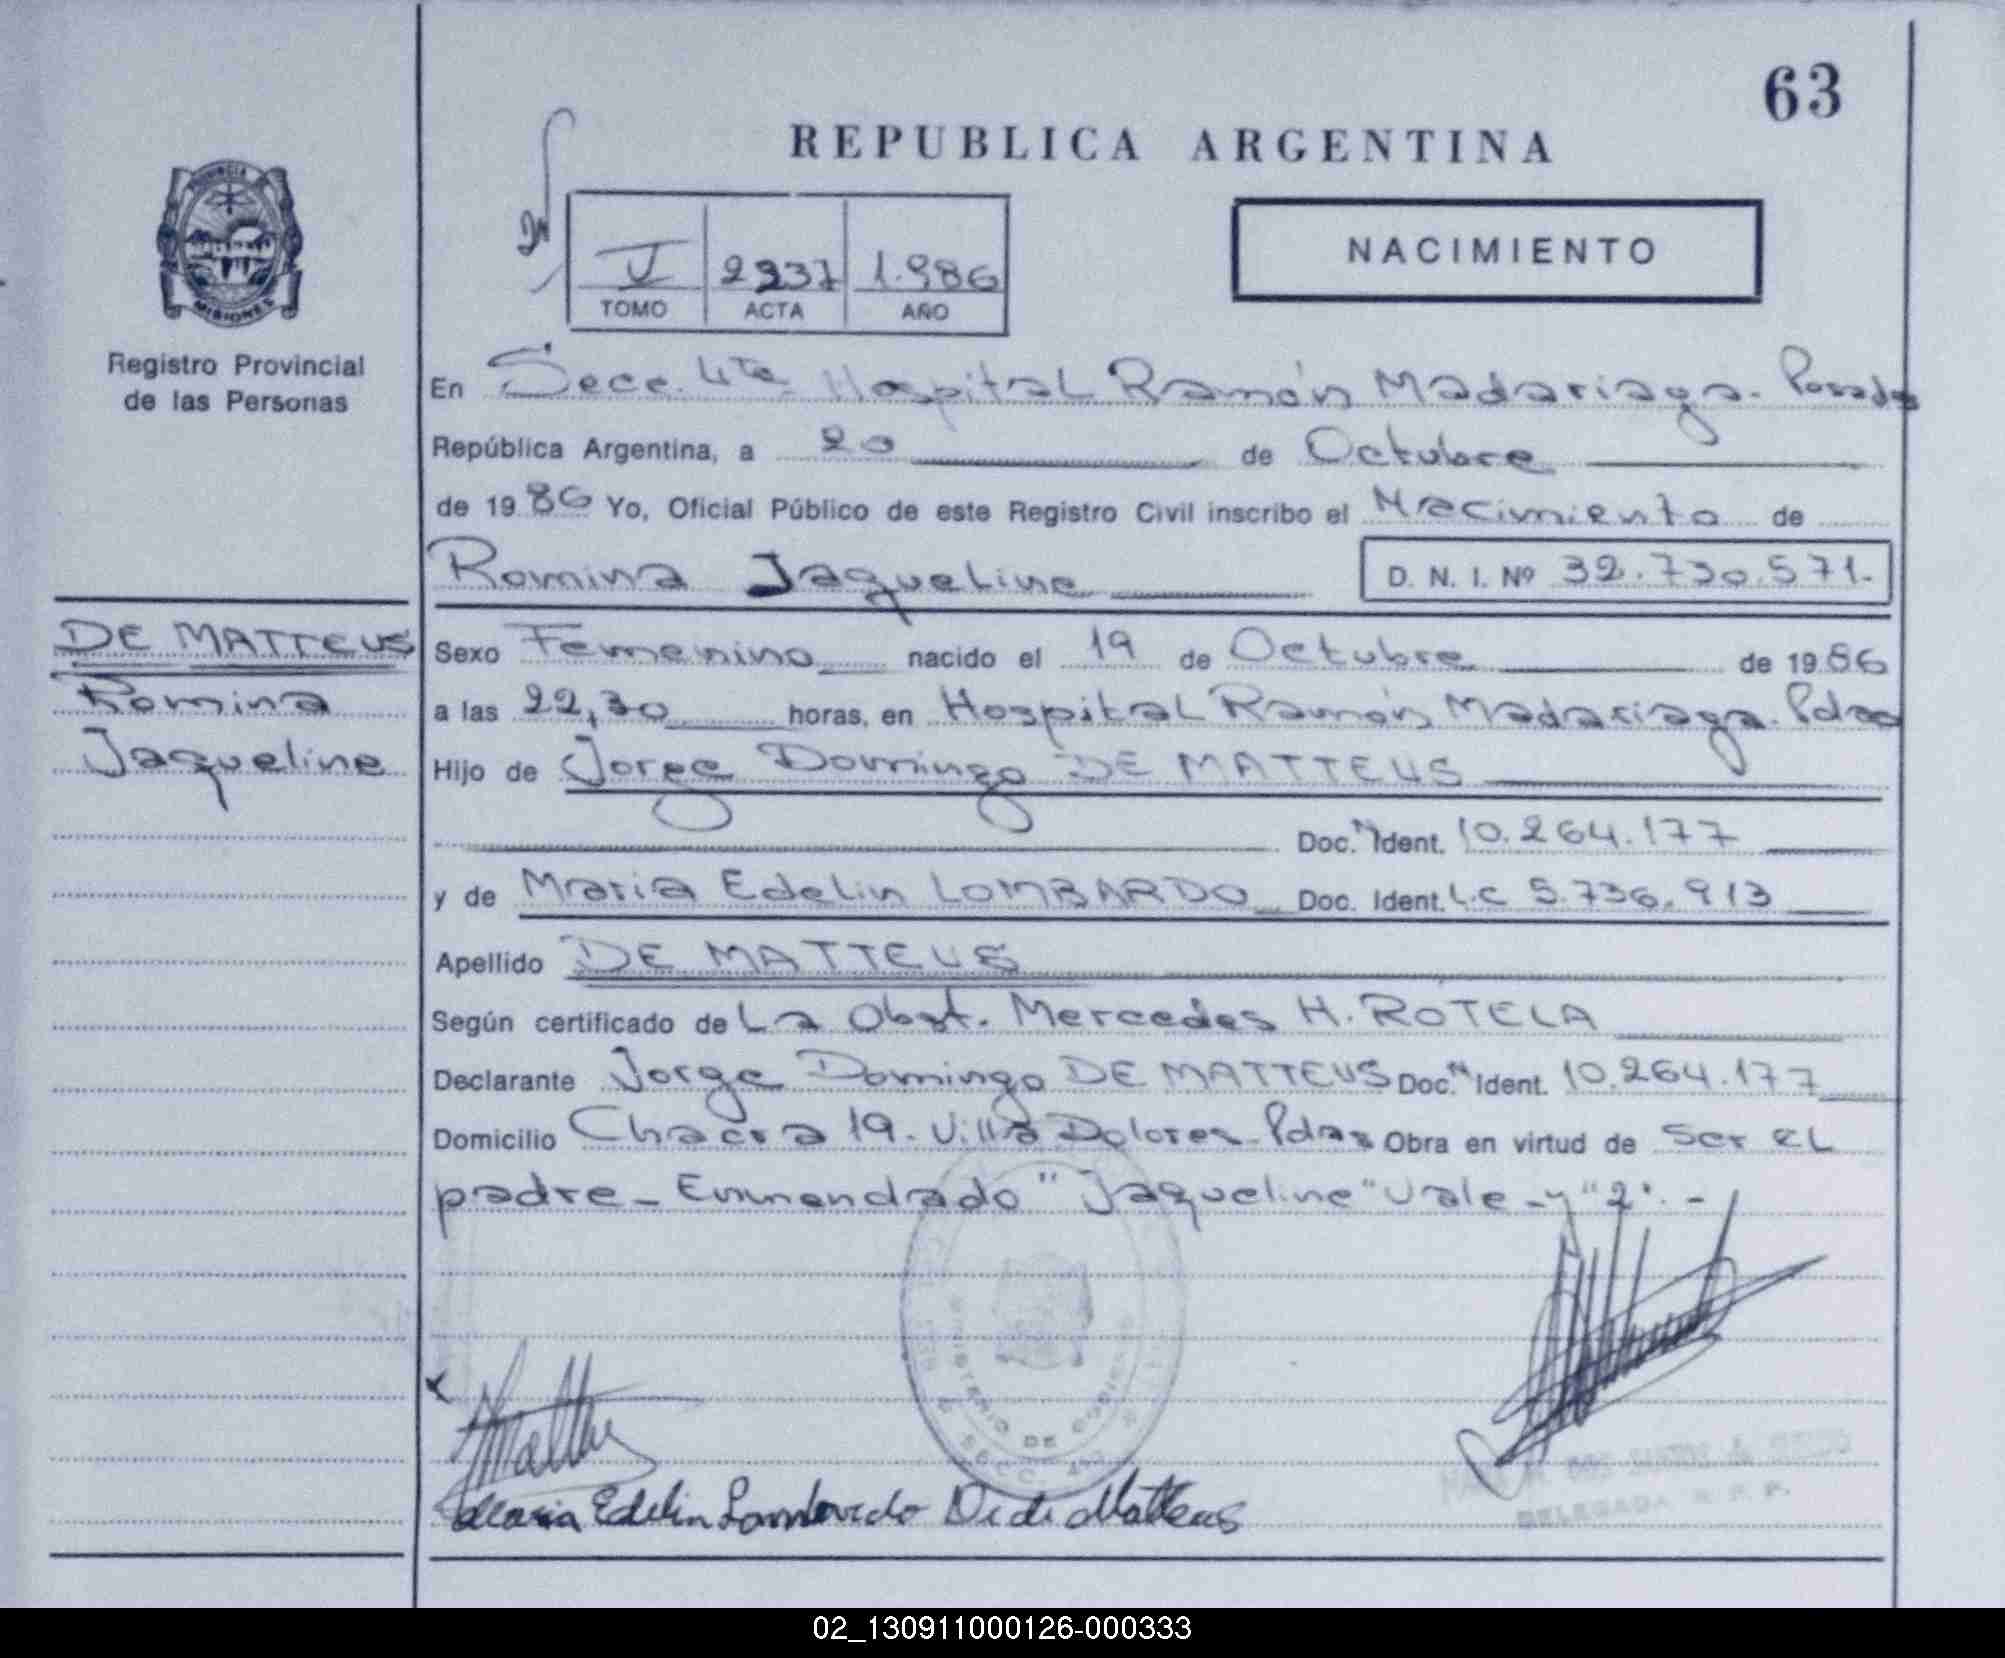 63
REPUBLICA ARGENTINA
PROVINCIA DE
MISIONES
Registro Provincial
de las Personas
V 2237 1.986
TOMO ACTA AÑO
NACIMIENTO
En Secc. 4ta. Hospital Ramón Madariaga. Posadas
República Argentina, a 20 de Octubre
de 1986 Yo, Oficial Público de este Registro Civil inscribo el Nacimiento de
Romina Jaqueline D. N. I. Nº 32.730.571.-
DE MATTEUS
Romina
Jaqueline
Sexo Femenino nacido el 19 de Octubre de 1986
a las 22,30 horas, en Hospital Ramón Madariaga. Pdas
Hijo de Jorge Domingo DE MATTEUS
Doc. Ident. 10.264.177
y de Maria Edelin LOMBARDO Doc. Ident. L.C 5.736.913
Apellido DE MATTEUS
Según certificado de La Obst. Mercedes H. ROTELA
Declarante Jorge Domingo DE MATTEUS Doc. Ident. 10.264.177
Domicilio Chacra 19. Villa Dolores. Pdas Obra en virtud de ser el
padre - Enmendado "Jaqueline" vale - y "2". -
MINISTERIO DE GOBIERNO
SECC. 4ta
Maria Edelin Lombardo D. de Matteus
DELEGADA R. P. P.
02_130911000126-000333